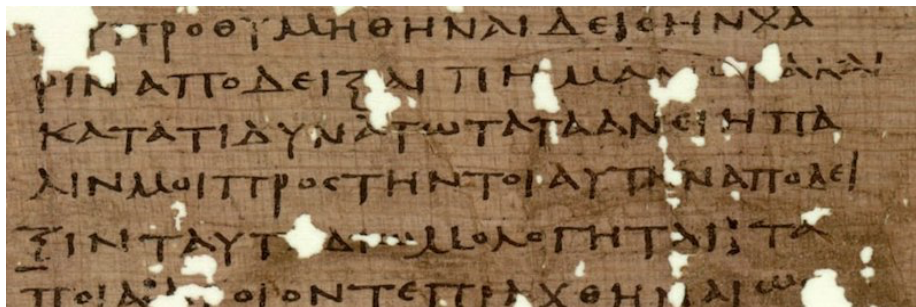 ΠΡΟΘΥΜΗΘΗΝΑΙΔΕΙϹΗΝΧΑ
ΡΙΝΑΠΟΔΕΙΞΑΙ ΠΗΜΑΛ ΑΚΑΙ
ΚΑΤΑΤΙΔΥΝΑΤΩΤΑΤΑΑΝΕΙΗΠΑ
ΛΙΝΜΟΙΠΡΟϹΤΗΝΤΟΙΑΥΤΗΝΑΠΟΔΕΙ
ΞΙΝΤΑΥΤ ΔΙΩΜΟΛΟΓΗΤΑΙ: ΤΑ
ΠΟΙΑ: ΟΙΟΝΤΕΠΡΑΧΘΗΝΑΙ